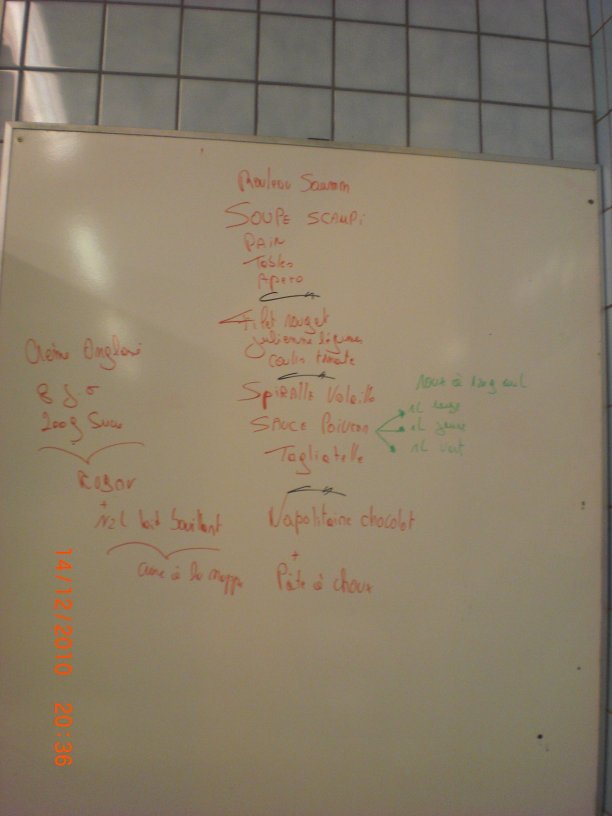 Rouleau Saumon
SOUPE SCAMPI
PAIN
Tables
Apero
Filet rouget
Julienne légumes
Coulis tomate
SPIRALLE Volaille
SAUCE Poivron
Tagliatelle
Napolitaine chocolat
+
Pâte à choux
Crème Anglaise
8 J
200g Sucre
Ruban
+
1/2 L lait bouillant
cuire à la nappe
roux à
1L rouge
1L jaune
1L vert
14/12/2010 20:36